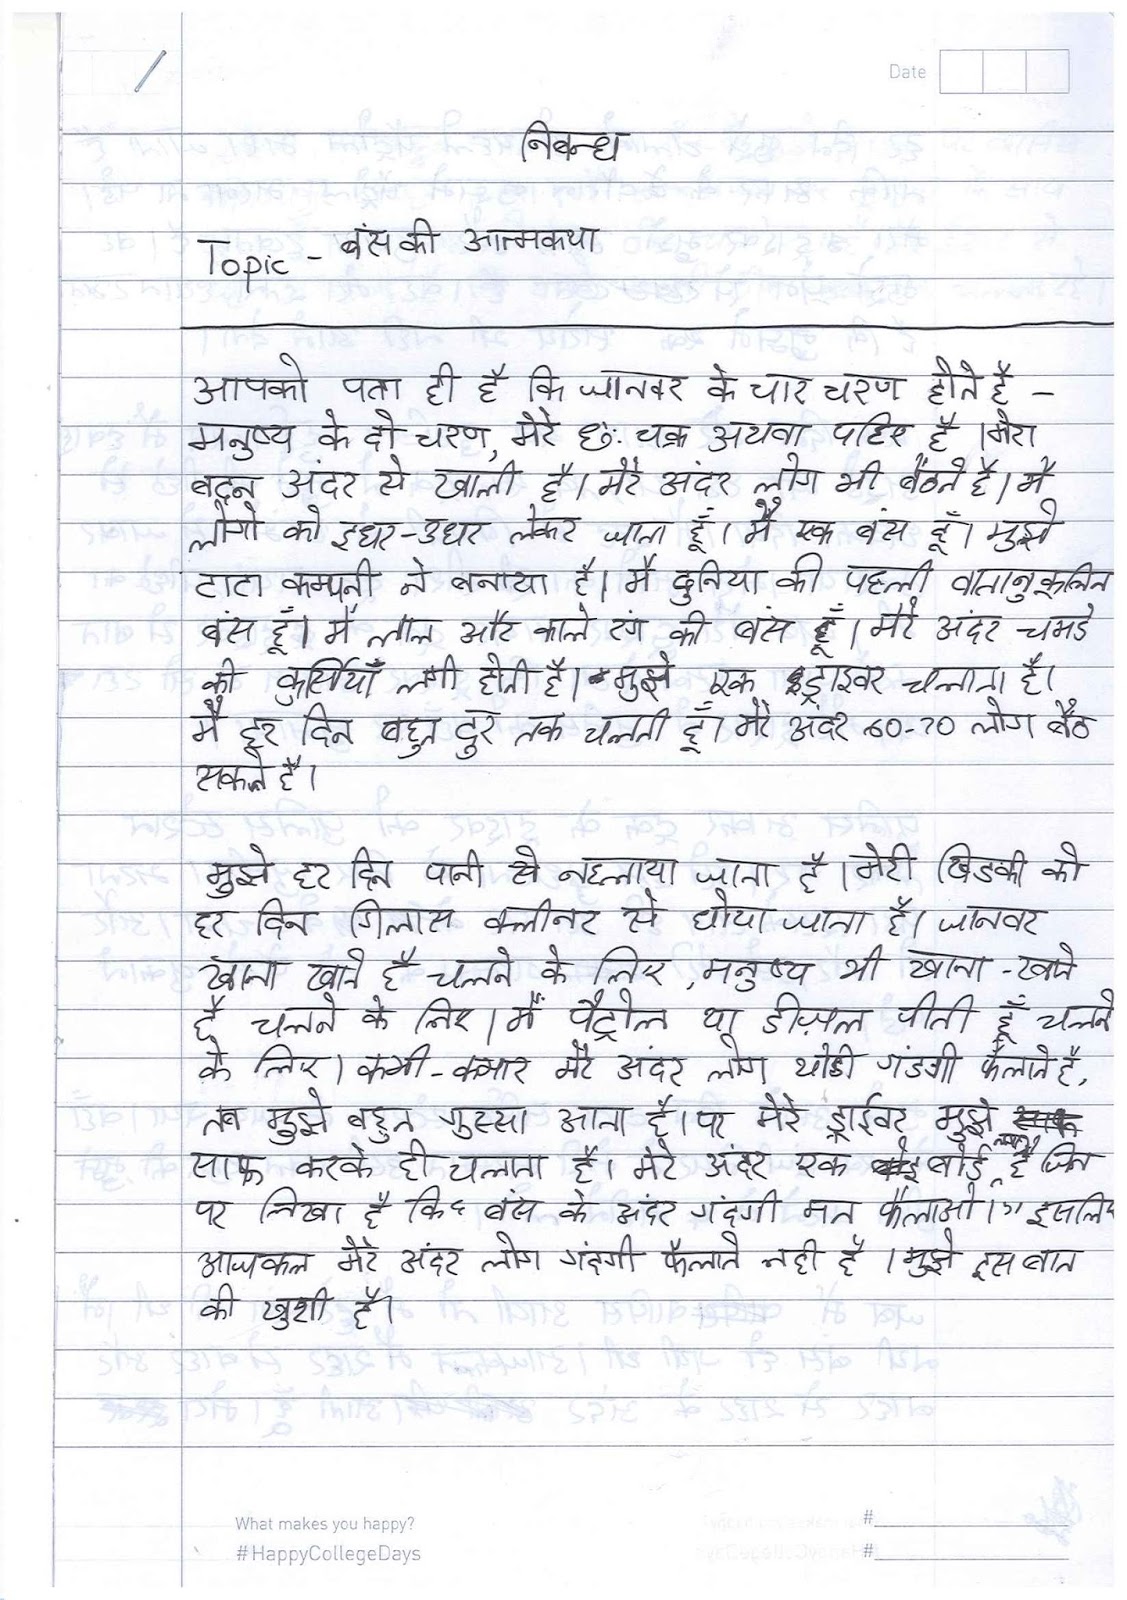 Date
निबन्ध
Topic - बंस की आत्मकथा
आपको पता ही है कि जानवर के चार चरण होते है -
मनुष्य के दो चरण, मेरे छः चक्र अथवा पहिए है । मेरा
बदन अंदर से खाली है। मेरे अंदर लोग भी बैठते है। मै
लोगो को इधर-उधर लेकर जाता हूँ। मै एक बंस हूँ। मुझे
टाटा कम्पनी ने बनाया है। मै दुनिया की पहली वातानुकूलित
बंस हूँ। मै लाल और काले रंग की बंस हूँ। मेरे अंदर चमडे
की कुर्सियाँ लगी होती है। मुझे एक ड्राइवर चलाता है।
मै हर दिन बहुत दुर तक चलती हूँ। मेरे अंदर 60-70 लोग बैठ
सकते है।
मुझे हर दिन पानी से नहलाया जाता है । मेरी खिडकी को
हर दिन गिलास क्लीनर से धोया जाता है। जानवर
खाना खाते है चलने के लिए, मनुष्य भी खाना -खाते
है चलने के लिए। मैं पैट्रोल या डीज़ल पीती हूँ चलने
के लिए। कभी-कभार मेरे अंदर लोग थोडी गंडगी फैलाते है,
तब मुझे बहुत गुस्सा आता है। पर मेरे ड्राईवर मुझे
साफ करके ही चलाता है। मेरे अंदर एक बोर्ड है जिस
पर लिखा है कि " बंस के अंदर गंदगी मत फैलाओ। " इसलिए
आजकल मेरे अंदर लोग गंदगी फैलाते नही है । मुझे इस बात
की खुशी है।
What makes you happy? #
#HappyCollegeDays #